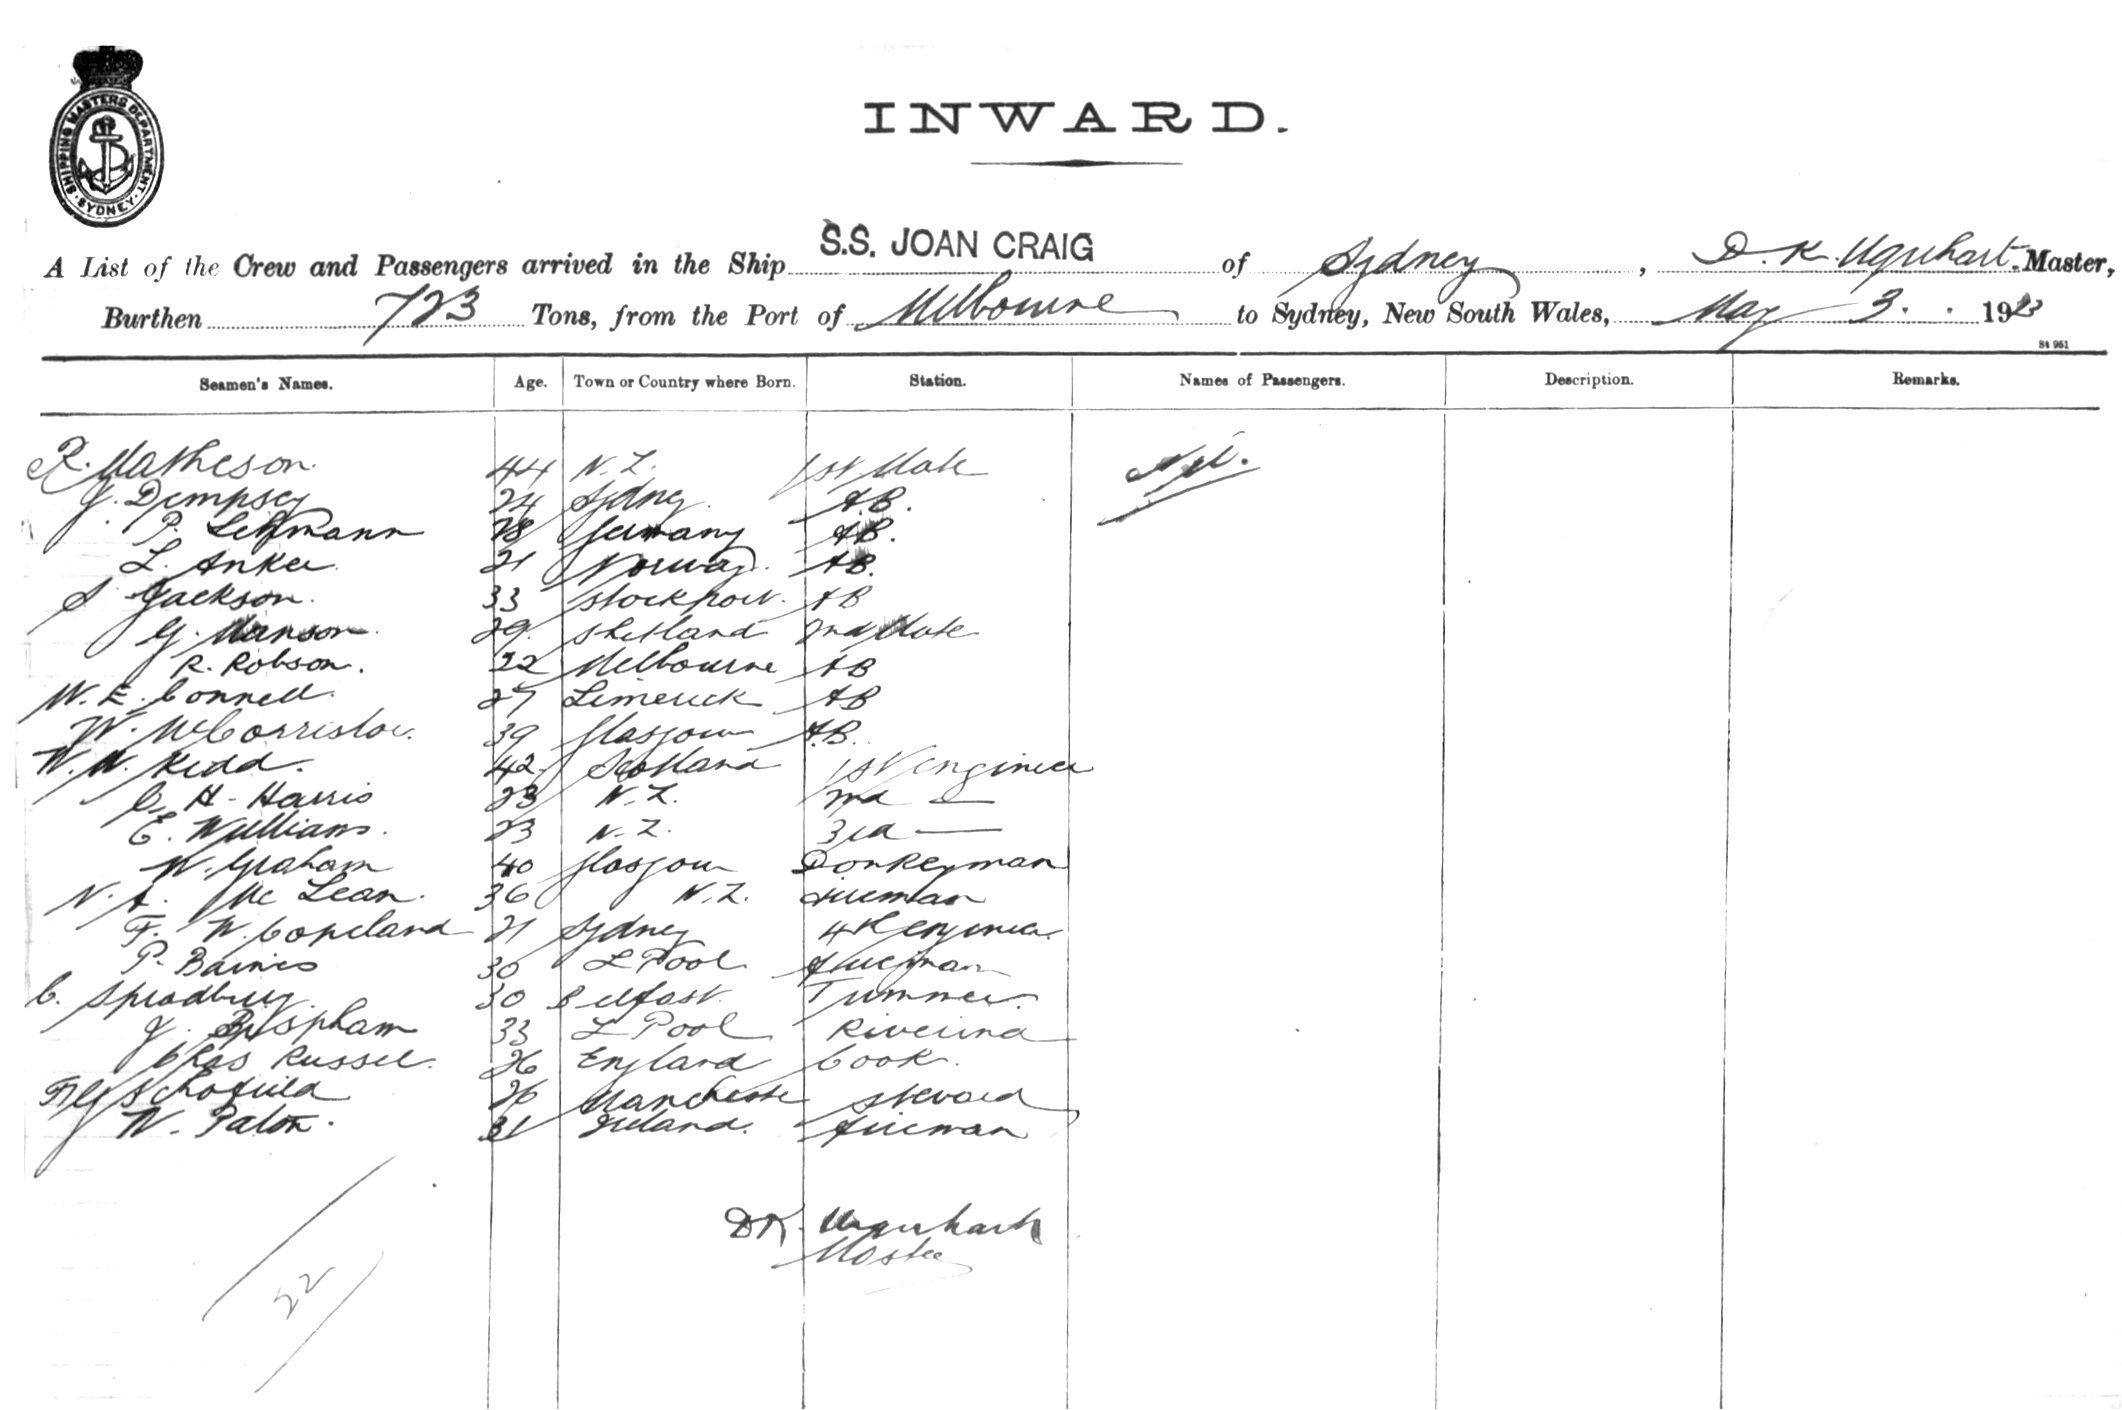 SHIPPING MASTERS DEPARTMENT · SYDNEY ·
INWARD.
A List of the Crew and Passengers arrived in the Ship S.S. JOAN CRAIG of Sydney, D. K. Urquhart. Master,
Burthen 723 Tons, from the Port of Melbourne to Sydney, New South Wales, May 3. 1923
S4 951
Seamen's Names. Age. Town or Country where Born. Station. Names of Passengers. Description. Remarks.
R. Matheson. 44 N.Z. 1st Mate Nil.
J. Dempsey 24 Sydney A.B.
P. Lehmann 28 Germany AB.
L. Anker 21 Norway. AB.
S Jackson. 33 Stockport. AB
G. Manson. 29. Shetland 2nd Mate
R. Robson. 22 Melbourne AB
W. E. Connell. 27 Limerick AB
W. McCorriston. 39 Glasgow A.B.
W. W. Kidd. 42. Scotland 1st Engineer
C. H. Harris 23 N.Z. 2nd —
E. Williams. 23 N.Z. 3rd —
W. Graham 40 Glasgow Donkeyman
N. A. McLean. 36 N.Z. Fireman
F. W. Copeland 21 Sydney 4th Engineer.
P. Baines 30 L Pool Fireman
C. Spradbury. 30 Belfast. Trimmer.
J. Bispham 33 L Pool Riverina
Chas Russel. 26 England Cook.
Schofield 26 Manchester Steward
W. Paton. 31 Ireland. Fireman
DK. Urquhart
Master
22